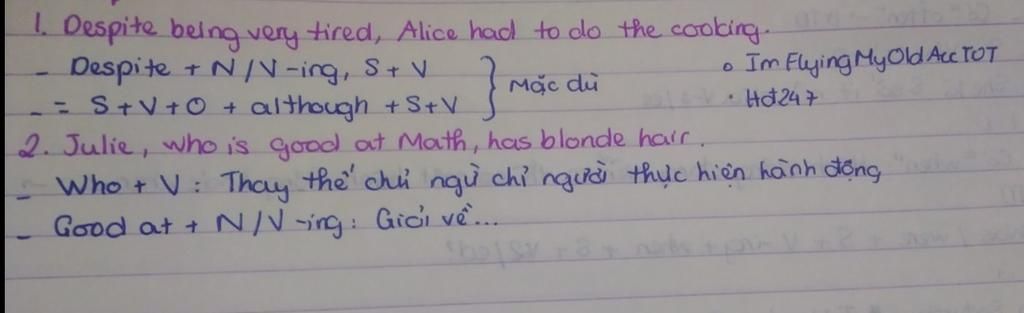 1. Despite being very tired, Alice had to do the cooking.
- Despite + N/V-ing, S + V
- = S + V + O + although + S + V
} Mặc dù
o ImFlyingMyOldAccTOT
• Hđ247
2. Julie, who is good at Math, has blonde hair.
- Who + V : Thay thế chủ ngữ chỉ người thực hiện hành động
- Good at + N/V-ing: Giỏi về...